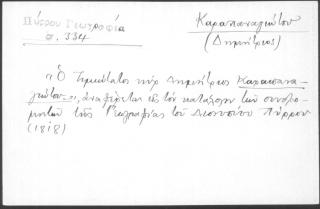 Πύρρου Γεωγραφία
σ. 334
Καραπαναγιώτου
(Δημήτριος)
"Ὁ Τιμιώτατος κὺρ Δημήτριος Καραπανα-
γιώτου", ἀναφέρεται εἰς τὸν κατάλογον τῶν συνδρο-
μητῶν τῆς Γεωγραφίας τοῦ Διονυσίου Πύρρου
(1818)